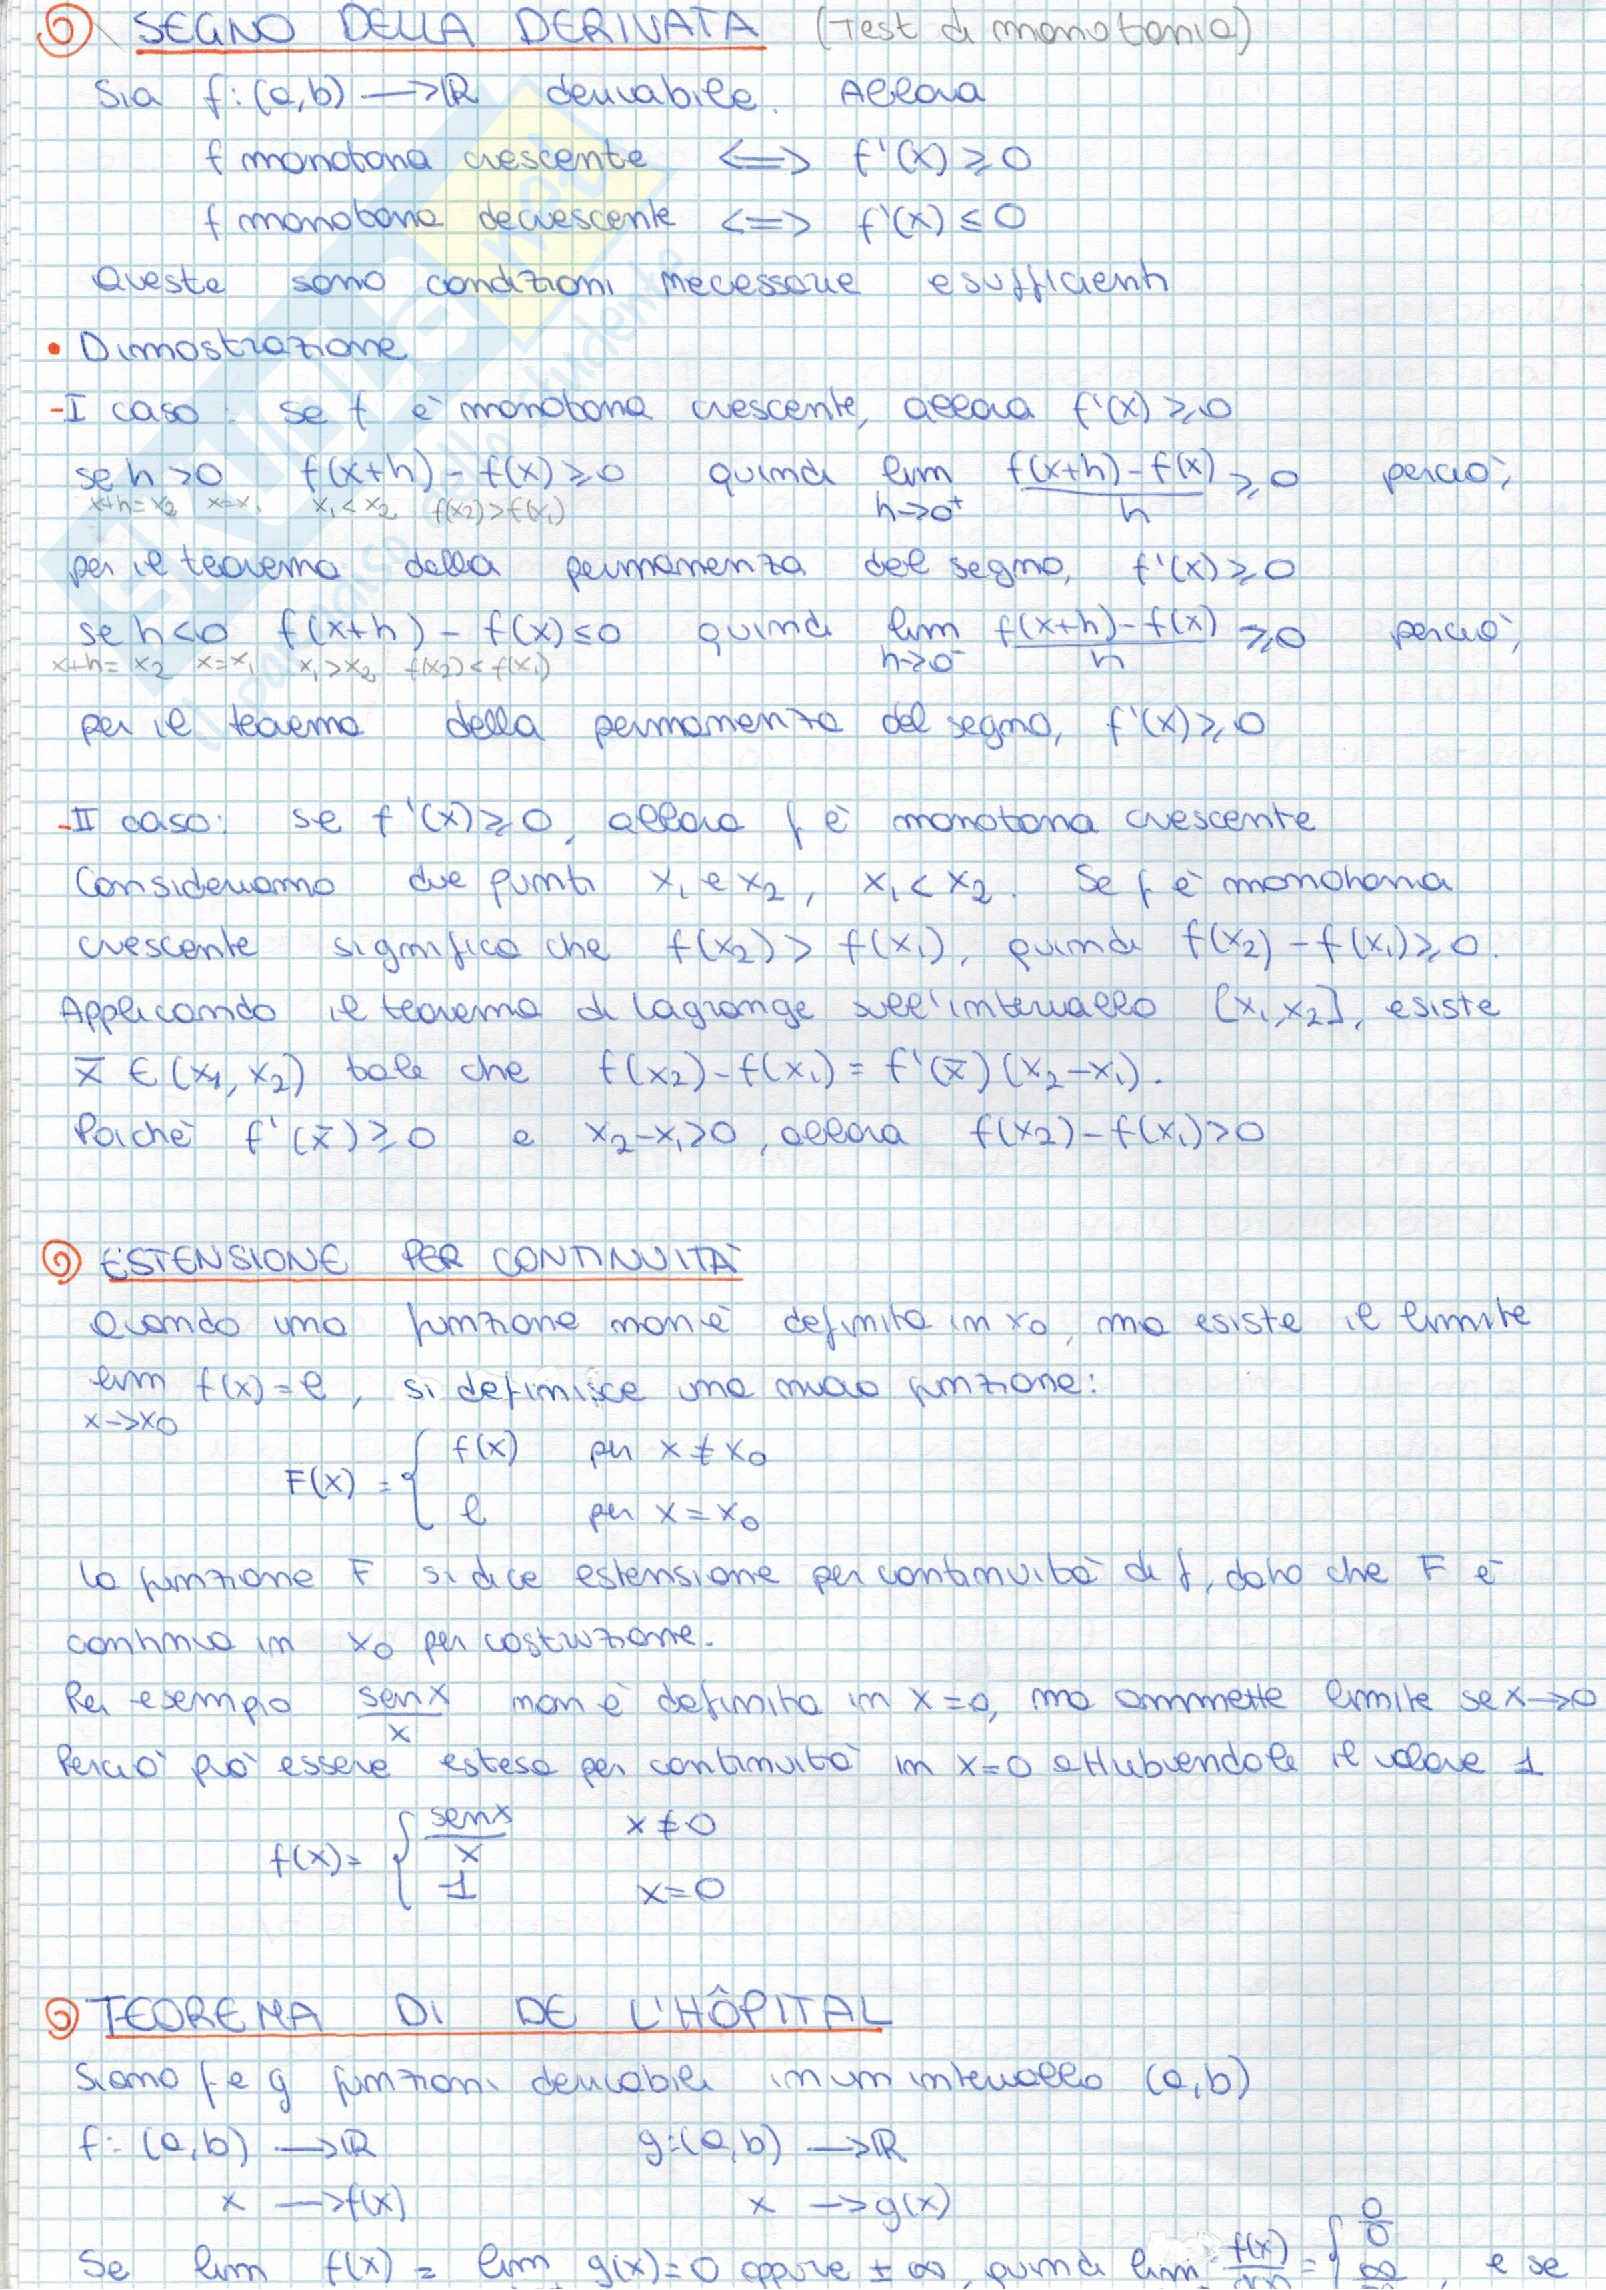 SEGNO DELLA DERIVATA (Test di monotonia)
Sia f:(a,b) →ℝ derivabile. Allora
f monotona crescente <=> f'(x) ≥ 0
f monotona decrescente <=> f'(x) ≤ 0
Queste sono condizioni necessarie e sufficienti
• Dimostrazione
-I caso: se f è monotona crescente, allora f'(x) ≥ 0
se h>0 f(x+h) - f(x) ≥ 0 quindi lim h→0⁺ (f(x+h)-f(x))/h ≥ 0 perciò,
x+h=x₂ x=x₁ x₁<x₂ f(x₂)>f(x₁)
per il teorema della permanenza del segno, f'(x) ≥ 0
se h<0 f(x+h) - f(x) ≤ 0 quindi lim h→0⁻ (f(x+h)-f(x))/h ≥ 0 perciò,
x+h=x₂ x=x₁ x₁>x₂ f(x₂)<f(x₁)
per il teorema della permanenza del segno, f'(x) ≥ 0
-II caso: se f'(x) ≥ 0, allora f è monotona crescente
Consideriamo due punti x₁ e x₂, x₁ < x₂. Se f è monotona
crescente significa che f(x₂) > f(x₁), quindi f(x₂) - f(x₁) ≥ 0.
Applicando il teorema di Lagrange sull'intervallo [x₁,x₂], esiste
x̄ ∈ (x₁, x₂) tale che f(x₂)-f(x₁) = f'(x̄) (x₂-x₁).
Poichè f'(x̄) ≥ 0 e x₂-x₁>0, allora f(x₂)-f(x₁)>0
ESTENSIONE PER CONTINUITÀ
Quando una funzione non è definita in x₀, ma esiste il limite
lim x→x₀ f(x)=l, si definisce una nuova funzione:
F(x) = { f(x) per x ≠ x₀
l per x = x₀
La funzione F si dice estensione per continuità di f, dato che F è
continua in x₀ per costruzione.
Per esempio senx/x non è definita in x=0, ma ammette limite se x→0
Perciò può essere estesa per continuità in x=0 attribuendole il valore 1
f(x)= { senx/x x≠0
1 x=0
TEOREMA DI DE L'HÔPITAL
Siano f e g funzioni derivabili in un intervallo (a,b)
f: (a,b) →ℝ g:(a,b) →ℝ
x →f(x) x →g(x)
Se lim f(x) = lim g(x)=0 oppure ±∞, quindi lim f(x) = { 0/0 ∞ , e se